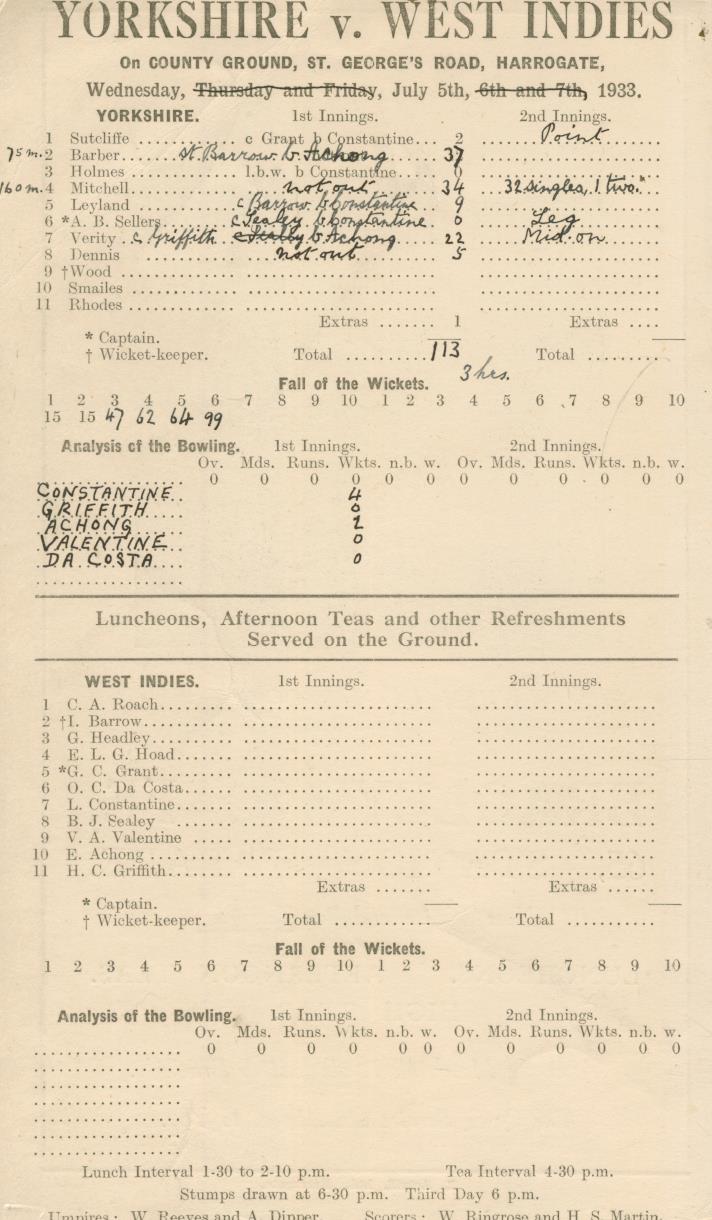 YORKSHIRE v. WEST INDIES
On COUNTY GROUND, ST. GEORGE'S ROAD, HARROGATE,
Wednesday, Thursday and Friday, July 5th, 6th and 7th, 1933.
YORKSHIRE. 1st Innings. 2nd Innings.
1 Sutcliffe ........... c Grant b Constantine... 2 Point
75 m. 2 Barber...... st Barrow b Achong 37
3 Holmes ........... l.b.w. b Constantine 0
160 m. 4 Mitchell........ not out 34 32 singles, 1 two.
5 Leyland ........ c Barrow b Constantine 9
6 *A. B. Sellers. c Sealey b Constantine. 0 Leg
7 Verity c Griffith b Achong 22 Mid-on
8 Dennis not out 5
9 †Wood
10 Smailes
11 Rhodes
Extras ....... 1 Extras ....
* Captain.
† Wicket-keeper. Total ......... 113 Total .........
Fall of the Wickets. 3 hrs.
1 2 3 4 5 6 7 8 9 10 1 2 3 4 5 6 7 8 9 10
15 15 47 62 64 99
Analysis of the Bowling. 1st Innings. 2nd Innings.
Ov. Mds. Runs. Wkts. n.b. w. Ov. Mds. Runs. Wkts. n.b. w.
0 0 0 0 0 0 0 0 0 0 0 0
CONSTANTINE 4
GRIFFITH 0
ACHONG 2
VALENTINE 0
DA COSTA 0
Luncheons, Afternoon Teas and other Refreshments
Served on the Ground.
WEST INDIES. 1st Innings. 2nd Innings.
1 C. A. Roach
2 †I. Barrow
3 G. Headley
4 E. L. G. Hoad
5 *G. C. Grant
6 O. C. Da Costa
7 L. Constantine
8 B. J. Sealey
9 V. A. Valentine
10 E. Achong
11 H. C. Griffith
Extras ....... Extras ......
* Captain.
† Wicket-keeper. Total ........... Total ...........
Fall of the Wickets.
1 2 3 4 5 6 7 8 9 10 1 2 3 4 5 6 7 8 9 10
Analysis of the Bowling. 1st Innings. 2nd Innings.
Ov. Mds. Runs. Wkts. n.b. w. Ov. Mds. Runs. Wkts. n.b. w.
0 0 0 0 0 0 0 0 0 0 0 0
Lunch Interval 1-30 to 2-10 p.m. Tea Interval 4-30 p.m.
Stumps drawn at 6-30 p.m. Third Day 6 p.m.
Umpires: W. Reeves and A. Dipper. Scorers: W. Ringrose and H. S. Martin.